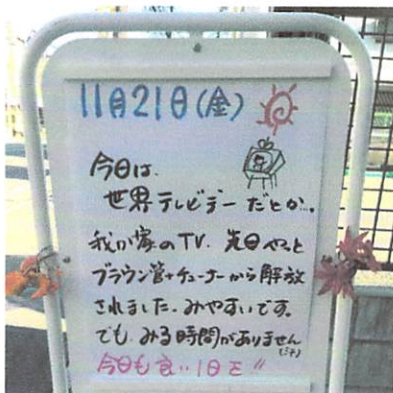 11月21日(金)
今日は、
世界テレビデーだとか…。
我が家のTV、先日やっと
ブラウン管+チューナーから解放
されました。みやすいです。
でも、みる時間がありません
今日も良い1日を!!